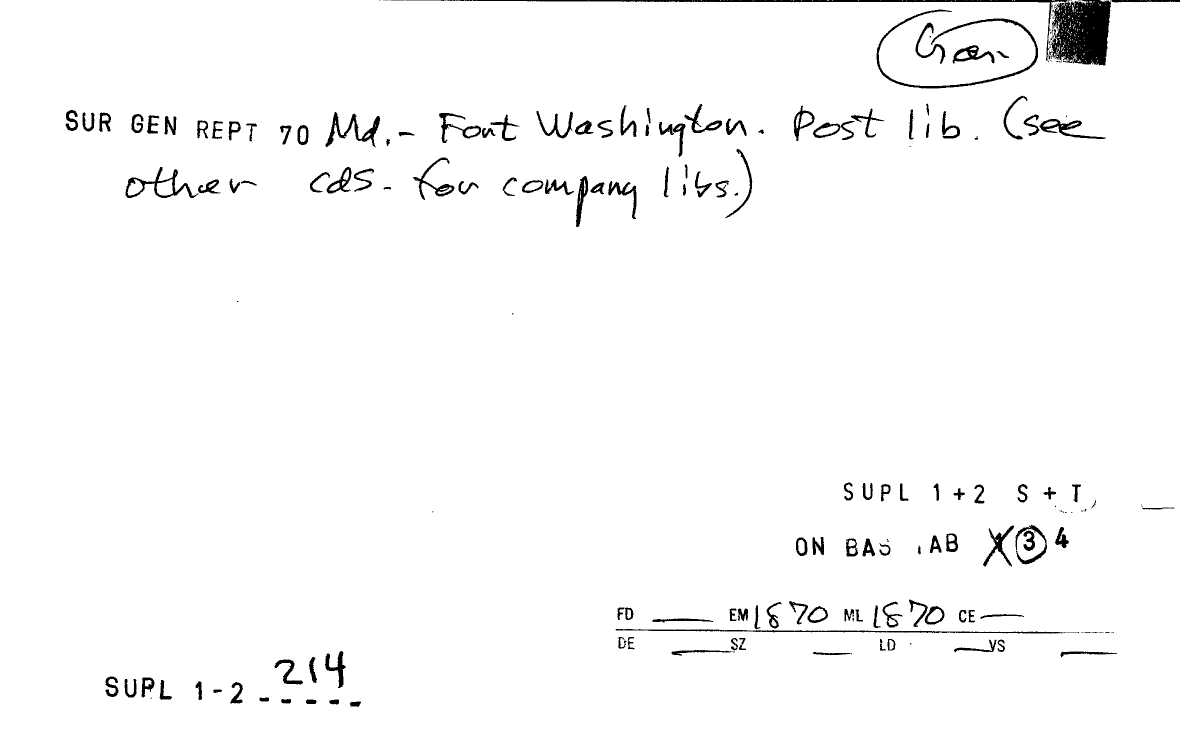 Gen
SUR GEN REPT 70 Md.- Fort Washington. Post lib. (see
other cds. for company libs.)
SUPL 1+2 S + T
ON BAS AB X 3 4
FD EM 1870 ML 1870 CE —
DE SZ LD VS
SUPL 1-2 214